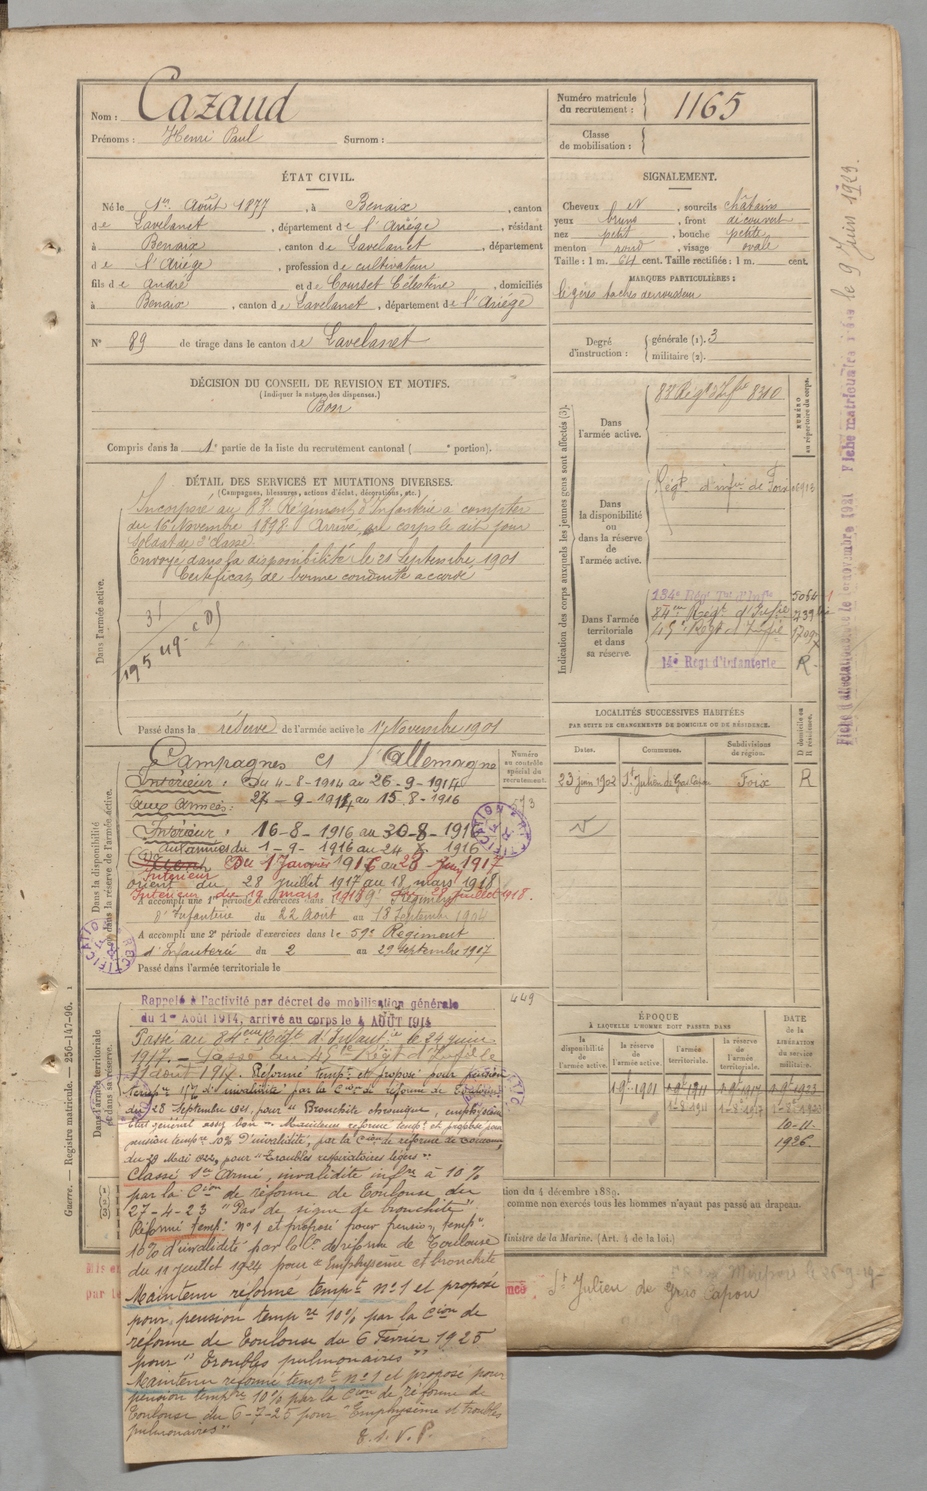 Nom : Cazaud
Prénoms : Henri Paul Surnom :
Numéro matricule du recrutement : 1165
Classe de mobilisation :
ÉTAT CIVIL.
Né le 1er Août 1877, à Benaix, canton
de Lavelanet, département de l'Ariége, résidant
à Benaix, canton de Lavelanet, département
de l'Ariége, profession de cultivateur
fils de andré et de Courset Célestine, domiciliés
à Benaix, canton de Lavelanet, département de l'Ariége
N° 89 de tirage dans le canton de Lavelanet
SIGNALEMENT.
Cheveux N, sourcils châtains
yeux bruns, front découvert
nez petit, bouche petite
menton rond, visage ovale
Taille : 1 m. 64 cent. Taille rectifiée : 1 m. cent.
MARQUES PARTICULIÈRES :
légères taches de rousseur
Degré d'instruction : générale (1). 3
militaire (2).
DÉCISION DU CONSEIL DE REVISION ET MOTIFS.
(Indiquer la nature des dispenses.)
Bon
Compris dans la 1e partie de la liste du recrutement cantonal ( e portion).
DÉTAIL DES SERVICES ET MUTATIONS DIVERSES.
(Campagnes, blessures, actions d'éclat, décorations, etc.)
Dans l'armée active.
Incorporé au 87e Régiment d'Infanterie à compter
du 16 Novembre 1898. Arrivé au corps le dit jour
Soldat de 2e classe.
Envoyé dans la disponibilité le 21 Septembre 1901
Certificat de bonne conduite accordé
Passé dans la réserve de l'armée active le 1er Novembre 1901
Indication des corps auxquels les jeunes gens sont affectés (3).
NUMÉRO au répertoire du corps.
Dans l'armée active.
87 Régt d'Infie 8310
Dans la disponibilité ou dans la réserve de l'armée active.
Régt d'infie de Foix
Dans l'armée territoriale et dans sa réserve.
134e Régt Tal d'Infie
84eme Régt d'Infie
45e Régt d'Infie
14e Régt d'Infanterie R
LOCALITÉS SUCCESSIVES HABITÉES
PAR SUITE DE CHANGEMENTS DE DOMICILE OU DE RÉSIDENCE.
Dates. Communes. Subdivisions de région. D domicile ou R résidence.
23 juin 1902 St Julien de Gras Capou Foix R
Dans la disponibilité ou dans la réserve de l'armée active.
Numéro au contrôle spécial du recrutement.
Campagnes Ct l'allemagne
Intérieur : Du 4-8-1914 au 26-9-1914
aux armées : 27-9-1914 au 15-8-1916
Intérieur : 16-8-1916 au 30-8-1916
aux armées du 1-9-1916 au 24 1916
Intérieur Du 1 Janvier 1917 au 28 Juin 1917
orient du 28 juillet 1917 au 18 mars 1918
Intérieur du 19 mars 1918 28 Juillet 1918.
A accompli une 1re période d'exercices dans l Régiment
d'Infanterie du 22 Août au 18 Septembre 1904
A accompli une 2e période d'exercices dans le 59e Régiment
d'Infanterie du 2 au 29 Septembre 1907
Passé dans l'armée territoriale le
449
Dans l'armée territoriale et dans sa réserve.
Rappelé à l'activité par décret de mobilisation générale
du 1er Août 1914, arrivé au corps le 4 AOÛT 1914
Passé au 84eme Régt d'Infanie le 24 juin
1917. Passé au 45e Régt d'Infie le
11 août 1917. Réformé tempre et proposé pour pension
tempre d'invalidité par la Cion de réforme de Toulouse
du 28 Septembre 1921, pour " Bronchite chronique, emphysème
Etat général assez bon ". Maintenu réformé tempre et proposé pour
pension tempre 10% d'invalidité, par la Cion de réforme de Toulouse
du 29 Mai 1922, pour "Troubles respiratoires légers".
Classé Sce Armé, invalidité infre à 10 %
par la Cion de réforme de Toulouse du
27-4-23 "Pas de signe de bronchite"
Réformé tempre n°1 et proposé pour pension tempre
10% d'invalidité par la Con de réforme de Toulouse
du 11 juillet 1924 pour "Emphysème et bronchite
Maintenu réformé tempre n°1 et proposé
pour pension tempre 10% par la Cion de
réforme de Toulouse du 6 Février 1925
pour " Troubles pulmonaires "
Maintenu réformé tempre n°1 et proposé pour
pension tempre 10% par la Cion de réforme de
Toulouse du 6-7-25 pour "Emphysème et troubles
pulmonaires"
T.S.V.P.
ÉPOQUE
À LAQUELLE L'HOMME DOIT PASSER DANS
la disponibilité de l'armée active. la réserve de l'armée active. l'armée territoriale. la réserve de l'armée territoriale. DATE de la LIBÉRATION du service militaire.
1 9bre 1901 1 9bre 1911 1 9bre 1917 1 9bre 1923
10-11-1926
tion du 4 décembre 1889.
comme non exercés tous les hommes n'ayant pas passé au drapeau.
Ministre de la Marine. (Art. 4 de la loi.)
St Julien de Gras Capou
Guerre. — Registre matricule. — 256-147-96.
Fiche matriculaire le 9 Juin 1929.